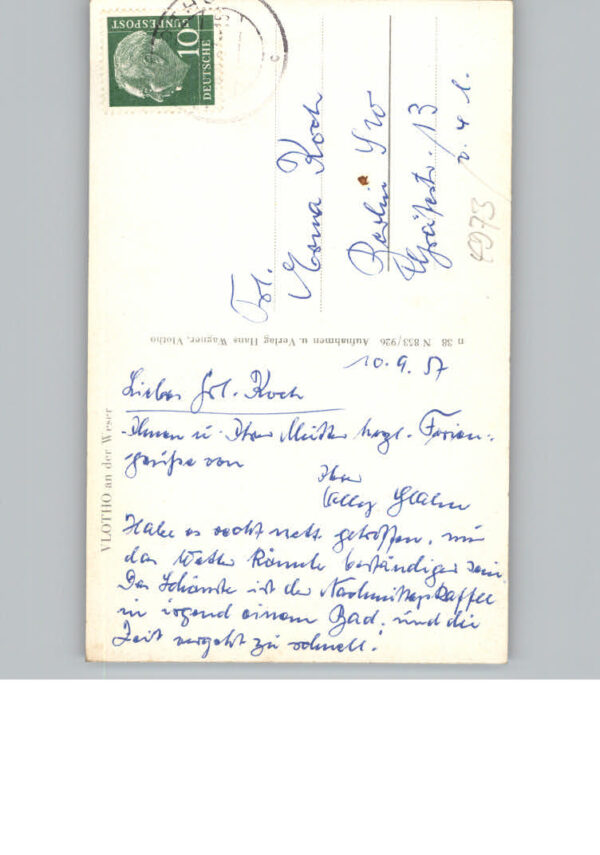 DEUTSCHE
BUNDESPOST
10
Frl.
Mona Koch
Berlin SW
Gräfestr. 13
v. 4 l.
4973
n 38 N 853/926 Aufnahmen u. Verlag Hans Wagner, Vlotho
VLOTHO an der Weser
10.9.57
Liebes Frl. Koch
Ihnen u. Ihrer Mutter herzl. Ferien-
grüße von
Ihrer
Habe es recht nett getroffen, nur
das Wetter könnte beständiger sein.
Das Schönste ist der Nachmittagskaffee
in irgend einem Bad, und die
Zeit vergeht zu schnell!